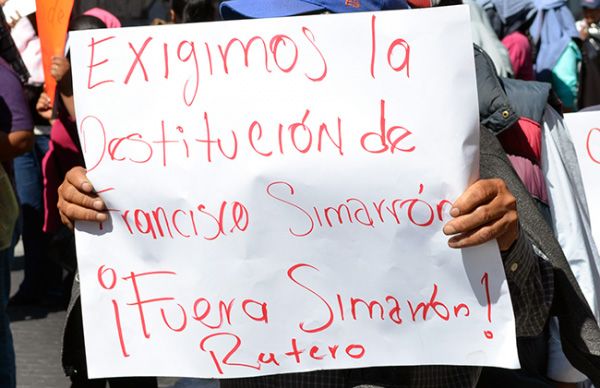 Exigimos la
Destitución de
Francisco Simarrón
¡Fuera Simarrón!
Rutero